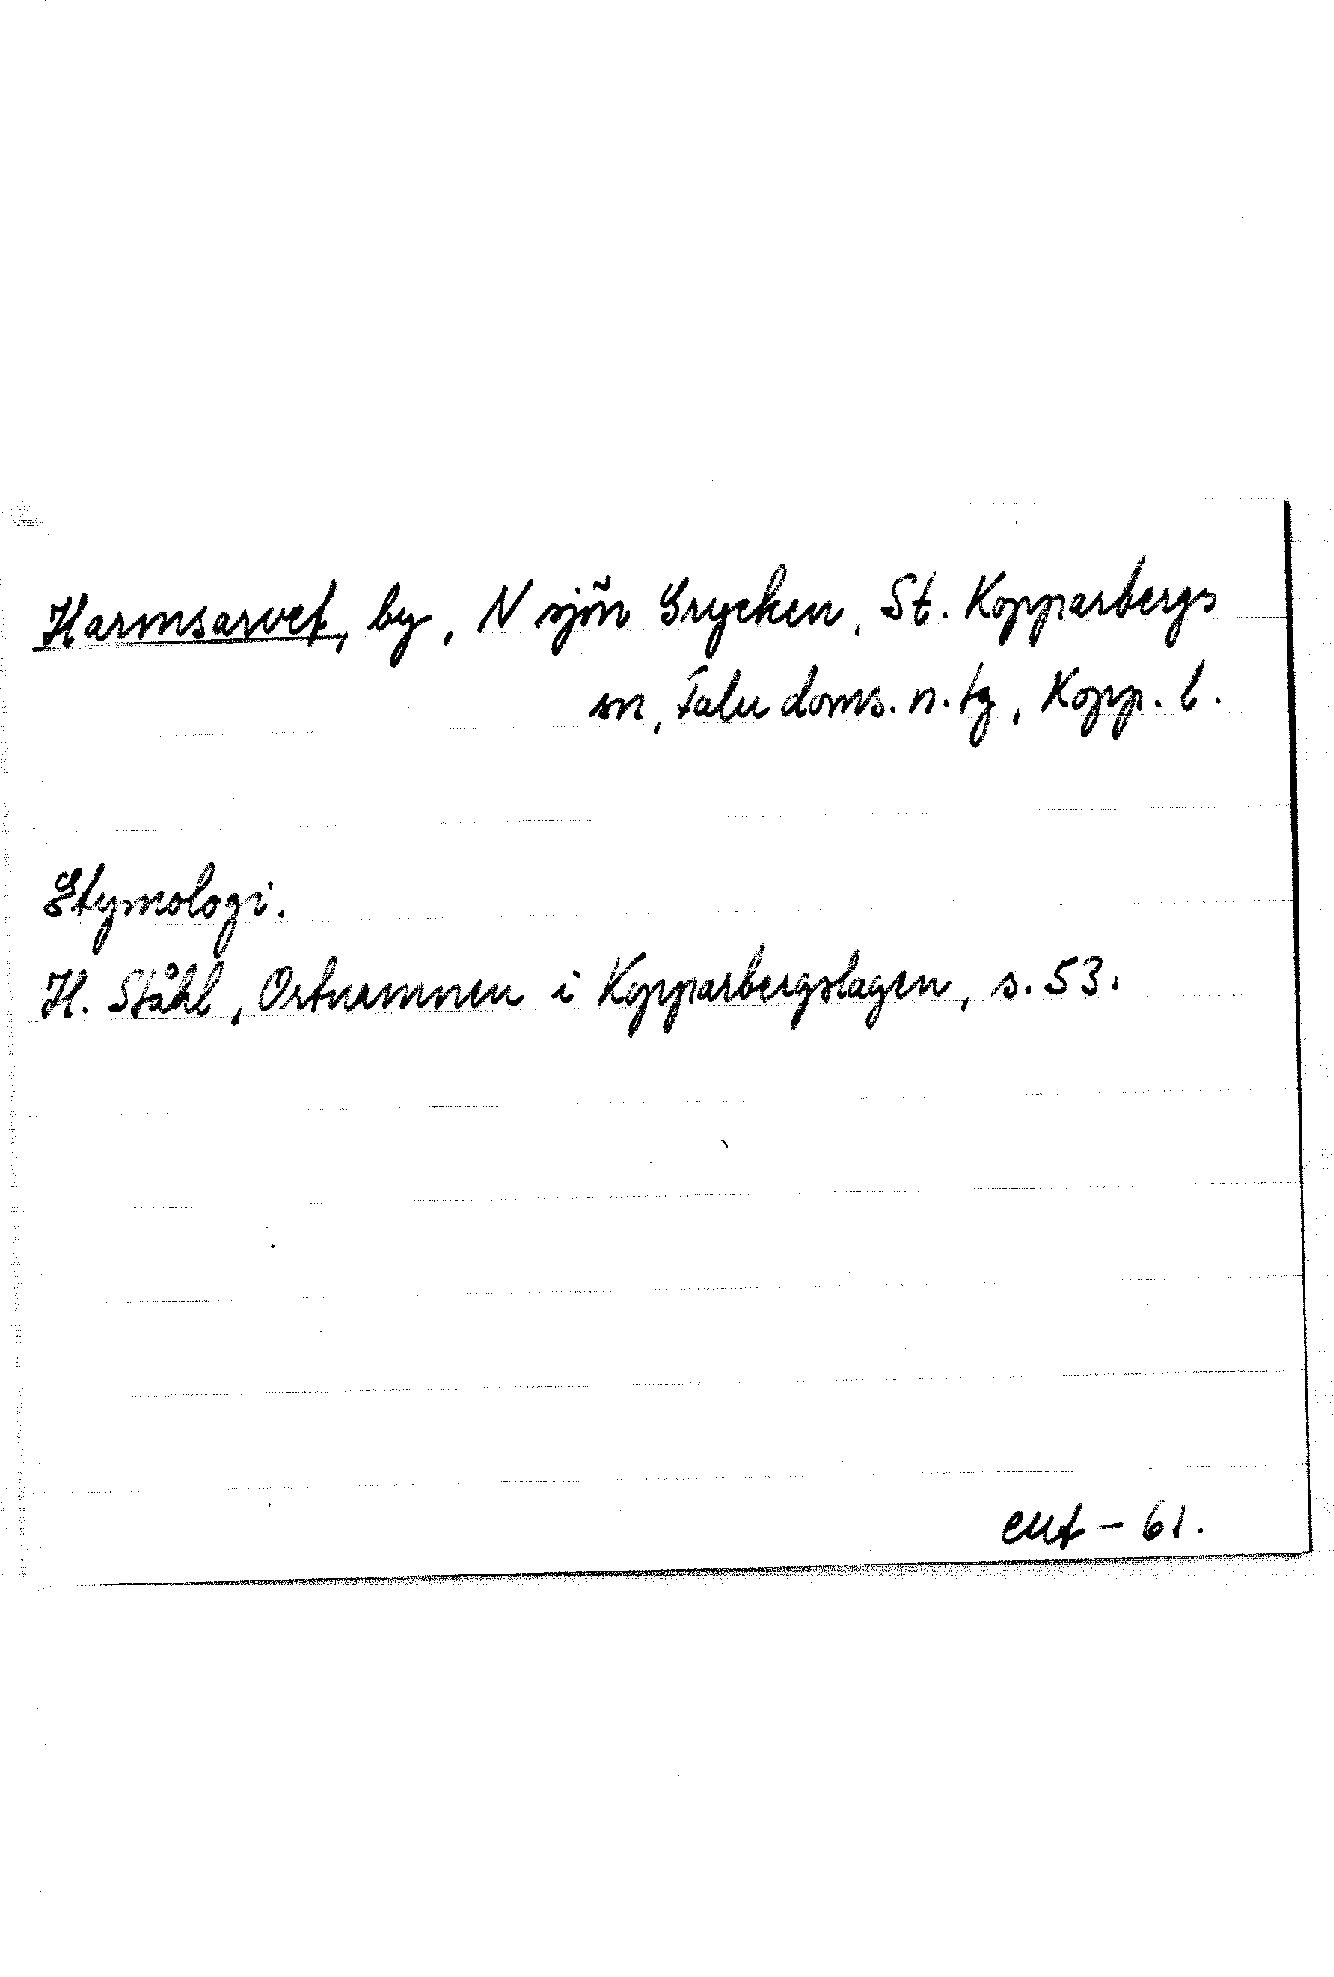 Harmsarvet, by, N sjön Grycken, St. Kopparbergs
sn, Falu doms. n. tg, Kopp. l.
Etymologi.
H. Ståhl, Ortnamnen i Kopparbergslagen, s. 53.
- 61.